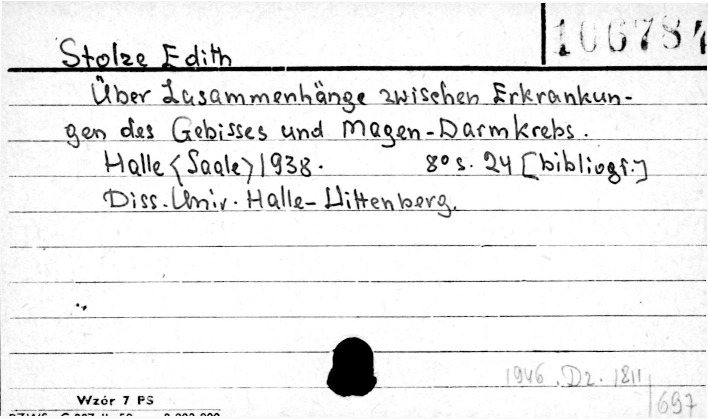 106784
Stolze Edith
Über Zusammenhänge zwischen Erkrankun-
gen des Gebisses und Magen-Darmkrebs.
Halle <Saale> 1938. 8° s. 24 [bibliogr.]
Diss. Univ. Halle-Wittenberg.
1946. Dz. 1811
697
Wzór 7 PS